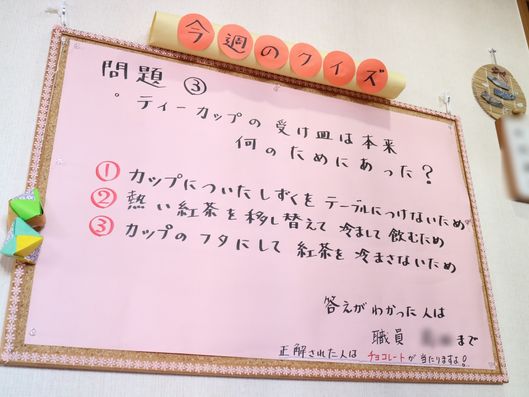 今週のクイズ
問題 ③
。ティーカップの受け皿は本来
何のためにあった？
① カップについたしずくをテーブルにつけないため
② 熱い紅茶を移し替えて冷まして飲むため
③ カップのフタにして紅茶を冷まさないため
答えがわかった人は
職員 まで
正解された人はチョコレートが当たりますよ！